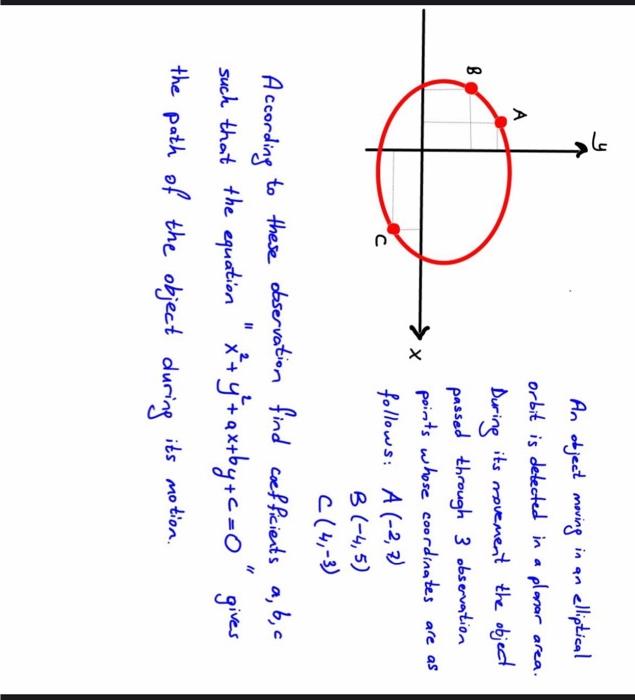 y
A
B
x
C
An object moving in an elliptical
orbit is detected in a planar area.
During its movement the object
passed through 3 observation
points whose coordinates are as
follows: A(-2,7)
B(-4,5)
C(4,-3)
According to these observation find coefficients a,b,c
such that the equation "x²+y²+ax+by+c=0" gives
the path of the object during its motion.